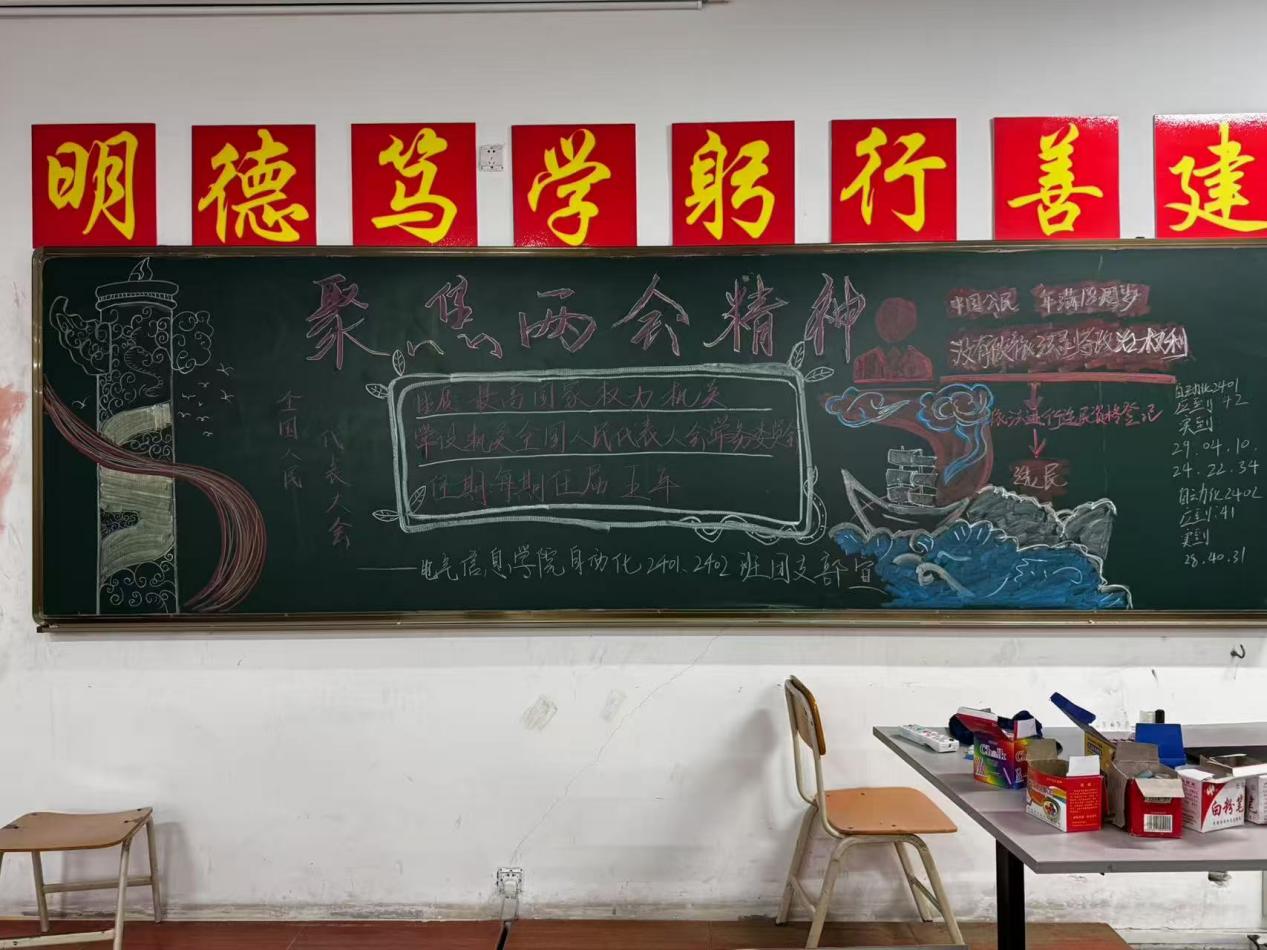 明德笃学躬行善建
聚焦两会精神
全国人民
代表大会
性质:最高国家权力机关
常设机关全国人民代表大会常务委员会
任期每期任届五年
——电气信息学院自动化2401、2402班团支部宣
中国公民 年满18周岁
没有被依法剥夺政治权利
依法进行选民资格登记
选民
自动化2401
应到:42
实到
29.04.10.
24.22.34
自动化2402
应到:41
实到
28.40.31
Chalk
白粉笔